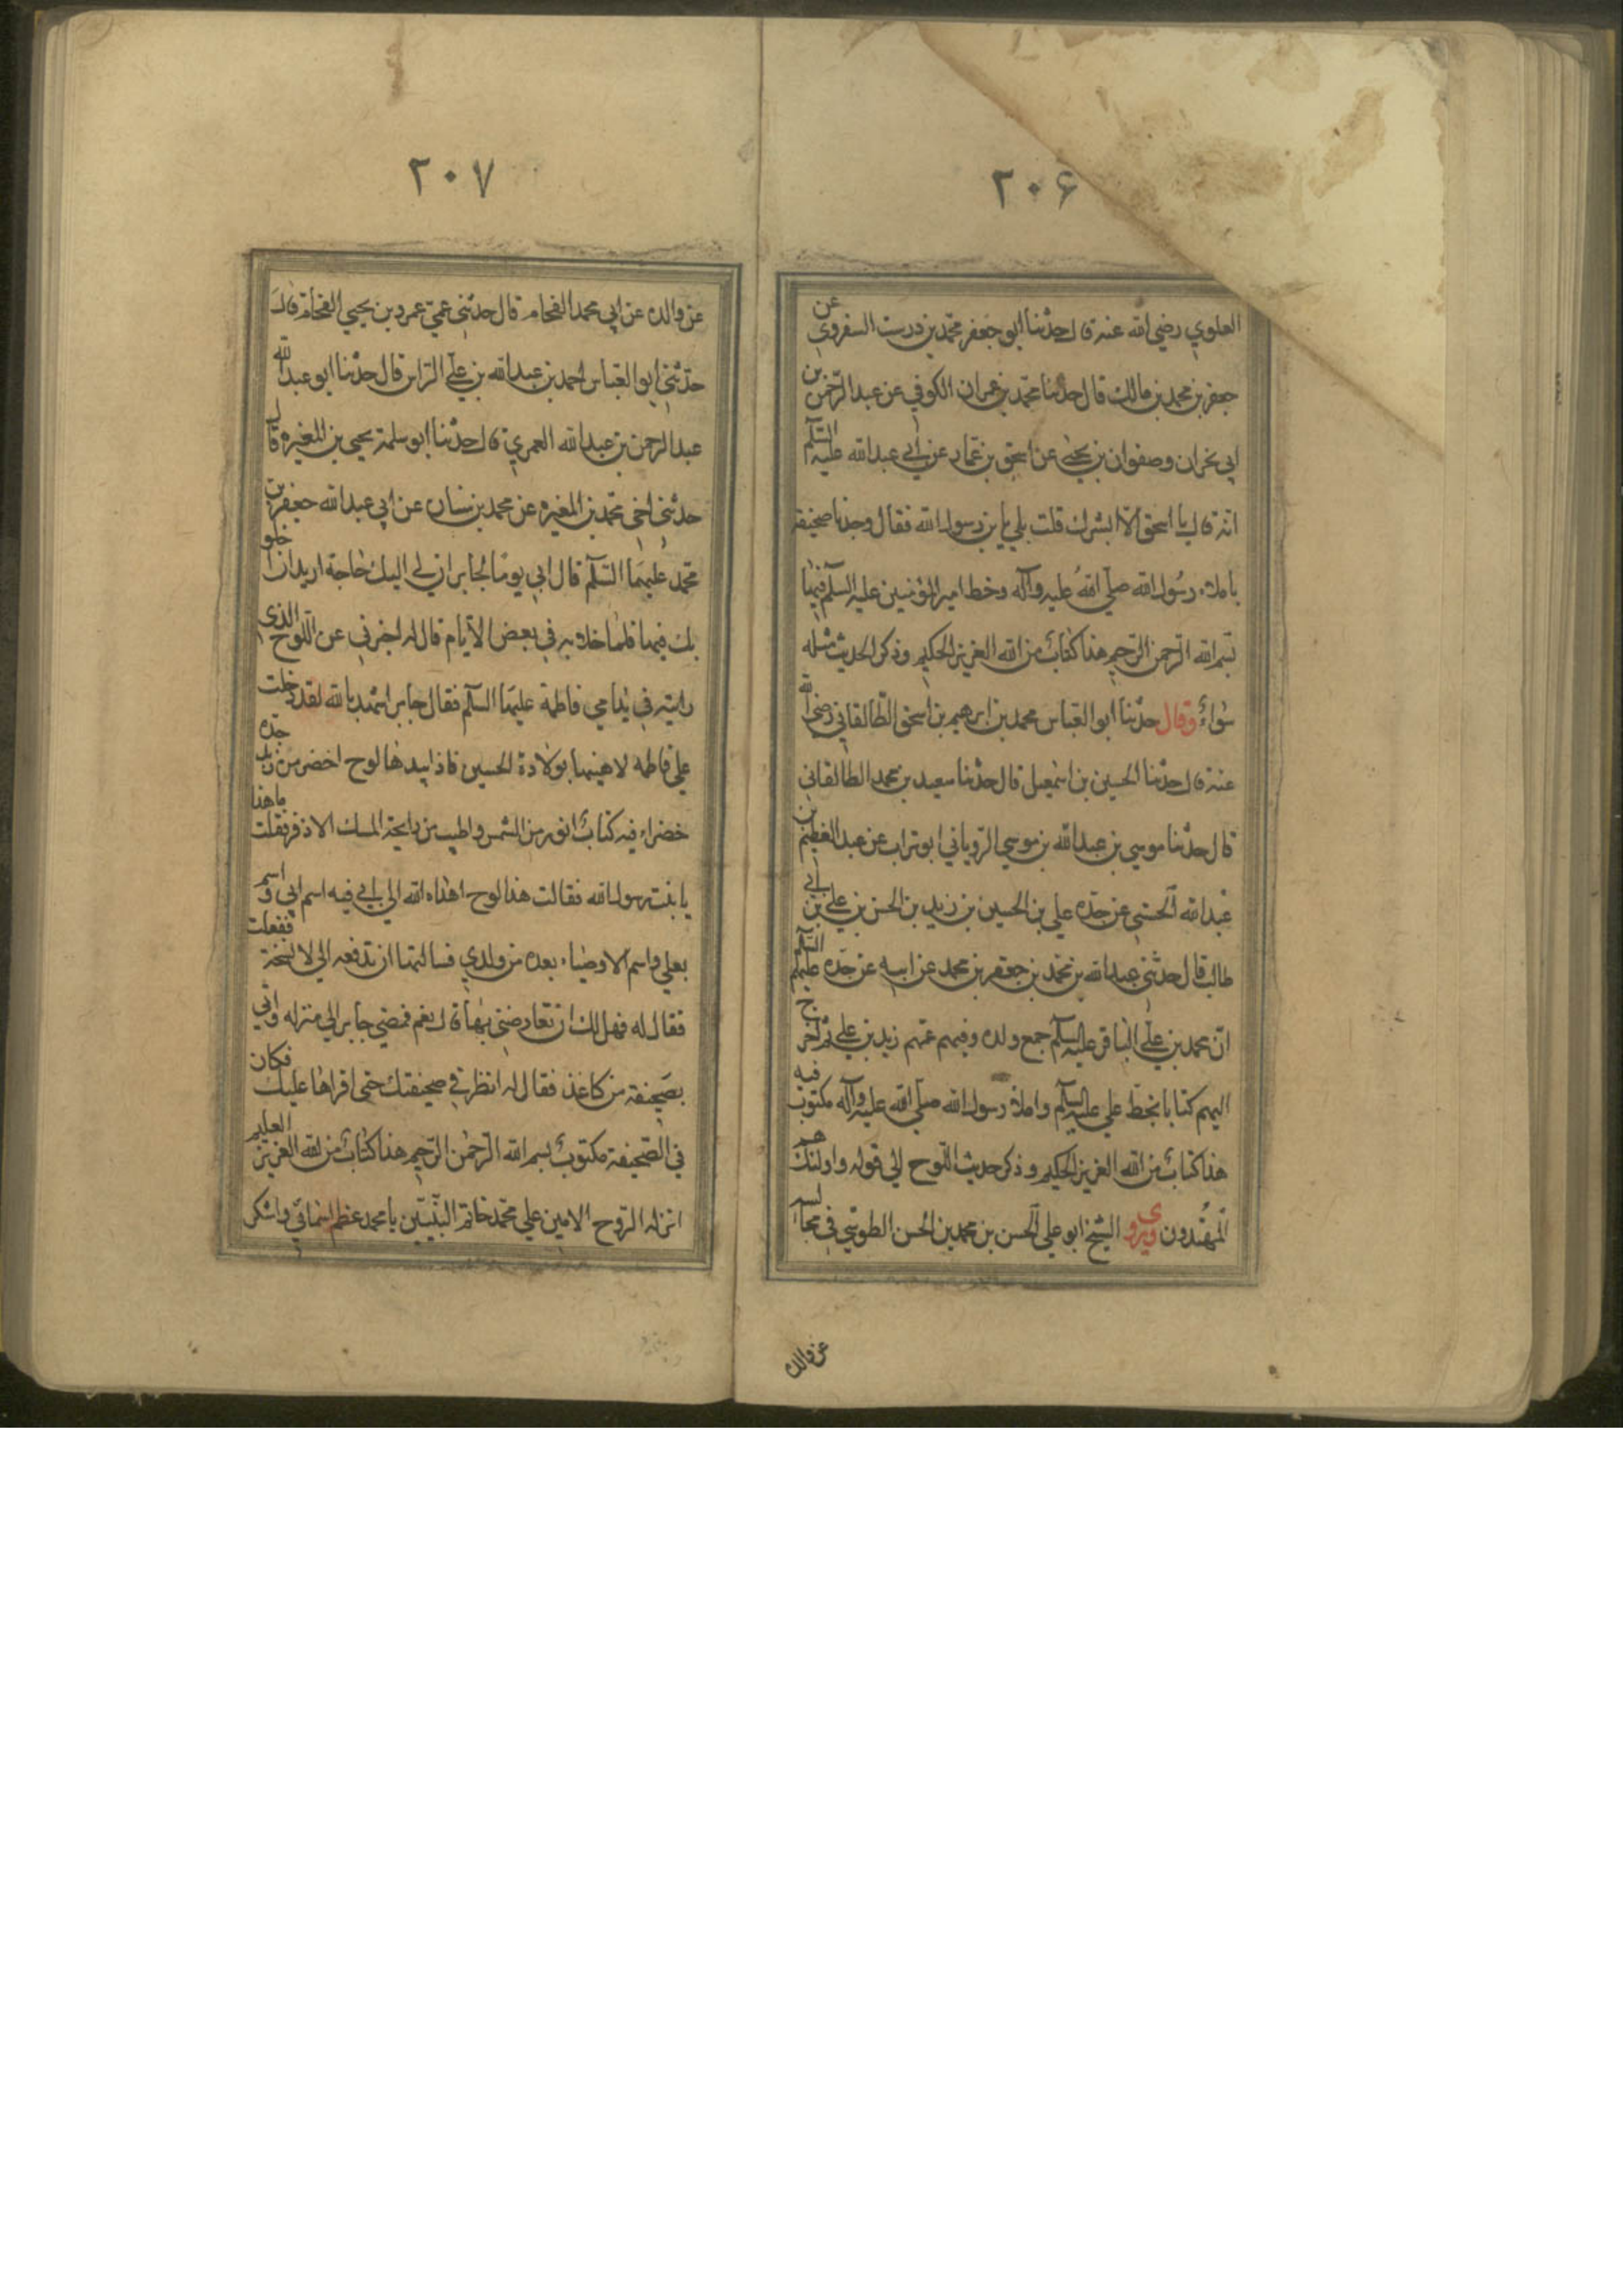 ٢٠۶
العلوي رضي الله عنه قال حدثنا ابو جعفر محمد بن درست السفروي عن
جعفر بن محمد بن مالك قال حدثنا محمد بن عمران الكوفي عن عبد الرحمن بن
ابي نجران وصفوان بن يحيى عن اسحق بن عمار عن ابي عبد الله عليه السلم
انه قال يا اسحق الا ابشرك قلت بلي يا بن رسول الله فقال وجدنا صحيفة
باملاء رسول الله صلي الله عليه وآله وخط امير المؤمنين عليه السلم فيها
بسم الله الرحمن الرحيم هذا كتاب من الله العزيز الحكيم وذكر الحديث مثله
سواء وقال حدثنا ابو العباس محمد بن ابرهيم بن اسحق الطالقاني رضي الله
عنه قال حدثنا الحسين بن اسمعيل قال حدثنا سعيد بن محمد الطالقاني
قال حدثنا موسي بن عبد الله بن موسي الروياني ابو تراب عن عبد العظيم بن
عبد الله الحسني عن جده علي بن الحسين بن زيد بن الحسن بن علي بن ابي
طالب قال حدثني عبد الله بن محمد بن جعفر بن محمد عن ابيه عن جده عليهم السلم
ان محمد بن علي الباقر عليه السلم جمع ولده وفيهم عمهم زيد بن علي ثم اخرج
اليهم كتابا بخط علي عليه السلم واملاء رسول الله صلي الله عليه وآله مكتوب فيه
هذا كتاب من الله العزيز الحكيم وذكر حديث اللوح الي قوله واولئك هم
المهتدون ويروى الشيخ ابو علي الحسن بن محمد بن الحسن الطوسي في مجالسه
عن والده
٢٠٧
عن والده عن ابي محمد الفحام قال حدثني عمي عمرو بن يحيي الفحام قال
حدثني ابو العباس احمد بن عبد الله بن علي الراس قال حدثنا ابو عبد الله
عبد الرحمن بن عبد الله العمري قال حدثنا ابو سلمة يحيي بن المغيره قال
حدثني اخي محمد بن المغيره عن محمد بن سنان عن ابي عبد الله جعفر بن
محمد عليهما السلم قال ابي يوما لجابر ان لي اليك حاجة اريد ان اخلو
بك فيها فلما خلا به في بعض الايام قال له اخبرني عن اللوح الذي
رايته في يد امي فاطمة عليها السلم فقال جابر اشهد بالله لقد دخلت
علي فاطمه لاهنيها بولادة الحسين فاذا بيدها لوح اخضر من زبرجده
خضراء فيه كتاب انور من الشمس واطيب من رايحة المسك الاذفر فقلت ما هذا
يا بنت رسول الله فقالت هذا لوح اهداه الله الي ابي فيه اسم ابي واسم
بعلي واسم الاوصياء بعده من ولدي فسالتها ان تدفعه الي لانسخه ففعلت
فقال له فهل لك ان تعارضني بها قال نعم فمضي جابر الي منزله واتي
بصحيفة من كاغذ فقال له انظر في صحيفتك حتي اقراها عليك فكان
في الصحيفة مكتوب بسم الله الرحمن الرحيم هذا كتاب من الله العزيز العليم
انزله الروح الامين علي محمد خاتم النبيين يا محمد عظم اسمائي واشكر